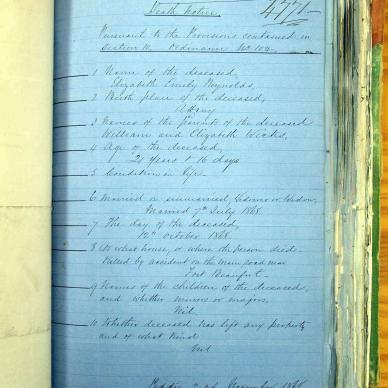 4771
Death Notice.
Pursuant to the Provisions contained in
Section 10, Ordinance No 104.
1 Name of the deceased,
Elizabeth Emily Reynolds,
2 Birth place of the deceased,
Albany
3 Names of the parents of the deceased
William and Elizabeth Weeks,
4 Age of the deceased,
21 years & 16 days
5 Condition in life,
6 Married or unmarried, Widower or Widow,
Married 7th July 1868.
7 The day of the deceased,
October 1868.
8 At what house, or where the person died
Killed by accident on the main road near
Fort Beaufort.
9 Names of the children of the deceased
and whether minors or majors,
Nil
10 Whether deceased has left any property
and of what kind
Nil
Peddie 2nd November 1868